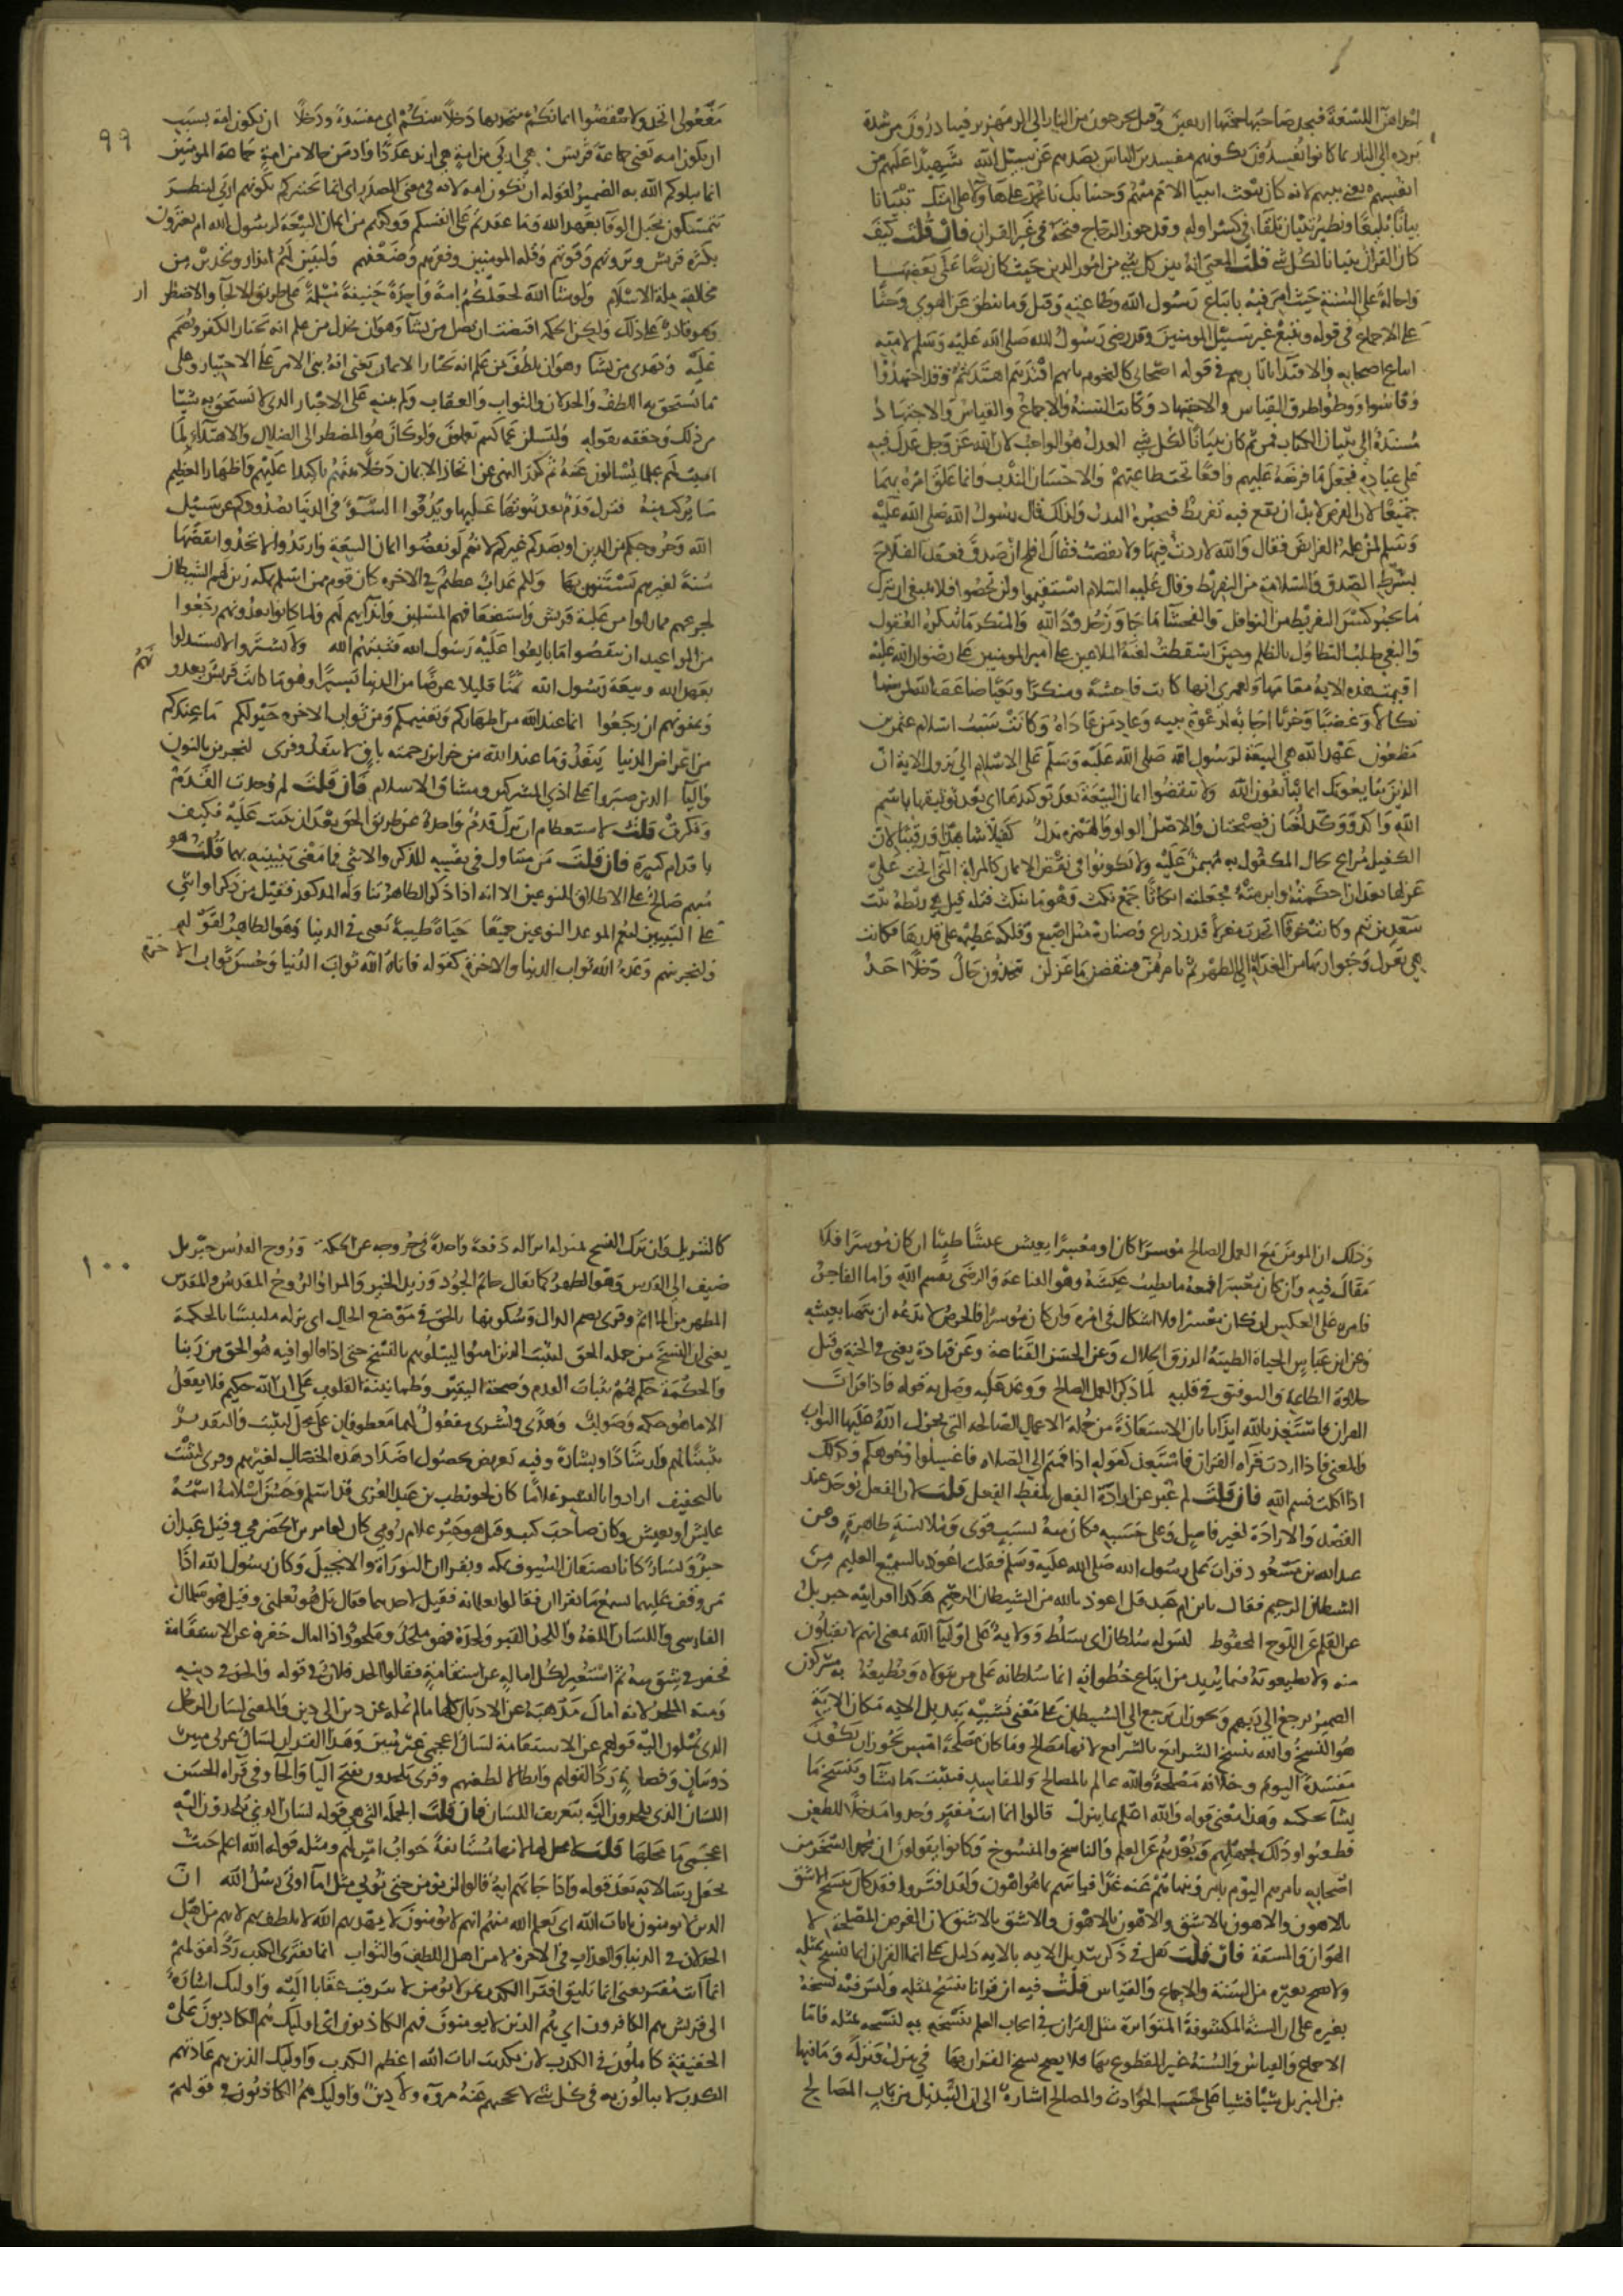 احداهن اللسعة فيجد صاحبها حمتها اربعين وقيل يخرجون من النار الى الزمهرير فيبادرون من شدة
برده الى النار بما كانوا يفسدون بكونهم مفسدين الناس بصدهم عن سبيل الله شهيدا عليهم من
انفسهم يعنى نبيهم لانه كان يبعث انبيا الامم منهم وجئنا بك يا محمد على هولا على امتك تبيانا
بيانا بليغا ونظير تبيان تلقا فى كسر اوله وقد جوز الزجاج فتحه فى غير القران فان قلت كيف
كان القران تبيانا لكل شى قلت المعنى انه بين كل شى من امور الدين حيث كان نصا على بعضها
واحالة على السنة حيث امر فيه باتباع رسول الله وطاعته وقيل وما ينطق عن الهوى وحثا
على الاجماع فى قوله ويتبع غير سبيل المومنين وقد رضى رسول الله صلى الله عليه وسلم لامته
اتباع اصحابه والاقتدا باثارهم فى قوله اصحابى كالنجوم بايهم اقتديتم اهتديتم وقد اجتهدوا
وقاسوا ووطوا طرق القياس والاجتهاد وكانت السنة والاجماع والقياس والاجتهاد
مستندة الى تبيان الكتاب فمن ثم كان تبيانا لكل شى العدل هو الواجب لان الله عز وجل عدل فيه
على عباده فجعل ما فرضه عليهم واقعا تحت طاعتهم والاحسان الندب وانما علق امره بهما
جميعا لان الفرض لا بد ان يقع فيه تفريط فيجبره الندب ولذلك قال رسول الله صلى الله عليه
وسلم لمن علمه الفرايض فقال والله لا زدت فيها ولا نقصت فقال افلح ان صدق فعقد الفلاح
بشرط الصدق والسلامة من التفريط وقال عليه السلام استقيموا ولن تحصوا فلا ينبغى ان يترك
ما يجبر كسر التفريط من النوافل والفحشا ما جاوز حدود الله والمنكر ما تنكره العقول
والبغى طلب التطاول بالظلم وحين اسقطت لعنة الملاعين على امير المومنين على رضوان الله عليه
اقيمت هذه الاية مقامها ولعمرى انها كانت فاحشة ومنكرا وبغيا ضاعف الله لمن سنها
نكالا وغضبا وخزيا اجابة لدعوة نبيه وعاد من عاداه وكانت سبب اسلام عثمن بن
مظعون عهد الله هى البيعة لرسول الله صلى الله عليه وسلم على الاسلام الى نزول الاية ان
الذين يبايعونك انما يبايعون الله ولا تنقضوا ايمان البيعة بعد توكيدها اى بعد توثيقها باسم
الله واكد ووكد لغتان فصيحتان والاصل الواو والهمزه بدل كفيلا شاهدا ورقيبا لان
الكفيل مراع حال المكفول به مهيمن عليه ولا تكونوا فى نقض الايمان كالمراة التى انحت على
غزلها بعد ان احكمته وابرمته فجعلته انكاثا جمع نكث وهو ما ينكث فتله قيل هى ريطة بنت
سعد بن تيم وكانت خرقا اتخذت مغزلا قدر ذراع وصنارة مثل اصبع وفلكة عظيمة على قدرها فكانت
هى تغزل وجواريها من الغداة الى الظهر ثم تامرهن فينقضن ما غزلن تتخذون حال دخلا احد
٩٩
مفعولى اتخذ ولا تنقضوا ايمانكم متخذيها دخلا بينكم اى مفسدة ودخلا ان تكون امة بسبب
ان تكون امه يعنى جماعة قريش هى اربى من امة هى ازيد عددا واوفر حالا من امة جماعة المومنين
انما يبلوكم الله به الضمير لقوله ان تكون امه لانه فى معنى المصدر اى انما يختبركم بكونهم اربى لينظر
تتمسكون بحبل الوفا بعهد الله وما عقدتم على انفسكم ووكدتم من ايمان البيعة لرسول الله ام تغترون
بكثرة قريش وثروتهم وقوتهم وقلة المومنين وفقرهم وضعفهم وليبينن لكم انذار وتحذير من
مخالفة ملة الاسلام ولو شا الله لجعلكم امة واحدة حنيفة مسلمة على طريق الالجا والاضطرار
وهو قادر على ذلك ولكن الحكمه اقتضت ان يضل من يشا وهو ان يخذل من علم انه يختار الكفر ويصمم
عليه ويهدى من يشا وهو ان يلطف بمن علم انه يختار الايمان يعنى انه بنى الامر على الاختيار وعلى
ما يستحق به اللطف والخذلان والثواب والعقاب ولم يبنه على الاجبار الذى لا يستحق به شيئا
من ذلك وحققه بقوله ولتسلن عما كنتم تعملون ولو كان هو المضطر الى الضلال والاهتداء لما
اثبت لهم عملا يسالون عنه ثم كرر النهى عن اتخاذ الايمان دخلا بينهم تاكيدا عليهم واظهارا لعظيم
ما يركب منه فتزل قدم بعد ثبوتها عليها وتذوقوا السوء فى الدنيا بصدودكم عن سبيل
الله وخروجكم من الدين او بصدكم غيركم لانهم لو نقضوا ايمان البيعة وارتدوا لاتخذوا نقضها
سنة لغيرهم يستنون بها ولكم عذاب عظيم فى الاخره كان قوم ممن اسلم بمكه زين لهم الشيطان
لجزعهم مما راوا من غلبة قريش واستضعافهم المسلمين وايذايهم لهم ولما كانوا يعدونهم ان رجعوا
من المواعيد ان ينقضوا ما بايعوا عليه رسول الله فثبتهم الله ولا تشتروا لا تستبدلوا
بعهد الله وبيعة رسول الله ثمنا قليلا عرضا من الدنيا يسيرا وهو ما كانت قريش يعدونهم
ويمنونهم ان رجعوا انما عند الله من اظهاركم وتغنيمكم ومن ثواب الاخره خير لكم ما عندكم
من اعراض الدنيا ينفد وما عند الله من خزاين رحمته باق لا ينفد وقرى لنجزين بالنون
واليا الذين صبروا على اذى المشركين ومشاق الاسلام فان قلت لم وحدت القدم
ونكرت قلت لاستعظام ان تزل قدم واحدة عن طريق الحق بعد ان ثبتت عليه فكيف
باقدام كثيرة فان قلت من متناول فى نفسه للذكر والانثى فما معنى تبيينه بهما قلت هو
مبهم صالح على الاطلاق للنوعين الا انه اذا ذكر الظاهر تناوله المذكور فقيل من ذكر او انثى
على التبيين ليعم الموعد النوعين جميعا حياة طيبة يعنى فى الدنيا وهو الظاهر لقوله
ولنجزينهم وعده الله ثواب الدنيا والاخرة كقوله فاتاهم الله ثواب الدنيا وحسن ثواب الاخرة
وذلك ان المومن مع العمل الصالح موسرا كان او معسرا يعيش عيشا طيبا ان كان موسرا فلا
مقال فيه وان كان معسرا فمعه ما يطيب عيشه وهو القناعة والرضى بقسم الله واما الفاجر
فامره على العكس ان كان معسرا فلا اشكال فى امره وان كان موسرا فالحرص لا يدعه ان يتهنا بعيشه
وعن ابن عباس الحياة الطيبة الرزق الحلال وعن الحسن القناعة وعن قتادة يعنى فى الجنة وقيل
حلاوة الطاعة والتوفيق فى قلبه لما ذكر العمل الصالح ووعد عليه وصل به قوله فاذا قرات
القران فاستعذ بالله ايذانا بان الاستعاذة من جملة الاعمال الصالحة التى يجزل الله عليها الثواب
والمعنى فاذا اردت قراة القران فاستعذ كقوله اذا قمتم الى الصلاه فاغسلوا وجوهكم وكقولك
اذا اكلت فسم الله فان قلت لم عبر عن ارادة الفعل بلفظ الفعل قلت لان الفعل يوجد عند
القصد والارادة لغير فاصل وعلى حسبه فكان منه بسبب قوى وملابسة ظاهرة وعن
عبد الله بن مسعود قرات على رسول الله صلى الله عليه وسلم فقلت اعوذ بالسميع العليم من
الشيطان الرجيم فقال يا ابن ام عبد قل اعوذ بالله من الشيطان الرجيم هكذا اقرانيه جبريل
عن القلم عن اللوح المحفوظ ليس له سلطان اى تسلط وولاية على اوليآ الله بمعنى انهم لا يقبلون
منه ولا يطيعونه فيما يريد من اتباع خطواته انما سلطانه على من يتولاه ويطيعه به مشركون
الضمير يرجع الى ربهم ويجوز ان يرجع الى الشيطان على معنى بسببه تبديل الايه مكان الاية
هو النسخ والله ينسخ الشرايع بالشرايع لانها مصالح وما كان مصلحة امس يجوز ان يكون
مفسدة اليوم وخلافه مصلحة والله عالم بالمصالح والمفاسد فيثبت ما يشا وينسخ ما
يشا بحكمته وهذا معنى قوله والله اعلم بما ينزل قالوا انما انت مفتر وجدوا مدخلا للطعن
فطعنوا وذلك لجهلهم وبعدهم عن العلم والناسخ والمنسوخ وكانوا يقولون ان محمدا يسخر من
اصحابه يامرهم اليوم بامر وينهاهم عنه غدا فياتيهم بما هو اهون ولقد افتروا فقد كان ينسخ الاشق
بالاهون والاهون بالاشق والاهون بالاهون والاشق بالاشق لان الغرض المصلحة لا
الهوان والمشقة فان قلت هل فى ذكر تبديل الايه بالايه دليل على انما القران انما ينسخ بمثله
ولا يصح بغيره من السنة والاجماع والقياس قلت فيه ان قرانا ينسخ بمثله وليس فيه نسخه
بغيره على ان السنة المكشوفة المتواترة مثل القران فى ايجاب العلم فنسخه بها كنسخه بمثله فاما
الاجماع والقياس والسنة غير المقطوع بها فلا يصح نسخ القران بها فى ينزل ونزله وما فيها
من التنزيل شيئا فشيا على حسب الحوادث والمصالح اشارة الى ان التبديل من باب المصالح
١٠٠
كالتنزيل وان ترك النسخ بمنزلة انزاله دفعة واحدة فى خروجه عن الحكمة وروح القدس جبريل
اضيف الى القدس وهو الطهر كما يقال حاتم الجود وزيد الخير والمراد الروح المقدس والمقدس
المطهر من الماثم وقرى بضم الدال وسكونها بالحق فى موضع الحال اى نزله ملتبسا بالحكمة
يعنى ان النسخ من جمله الحق ليثبت الذين امنوا ليبلوهم بالنسخ حتى اذا قالوا فيه هو الحق من ربنا
والحكمة حكم لهم بثبات القدم وصحة اليقين وطمانينة القلوب على ان الله حكيم فلا يفعل
الا ما هو حكمه وصواب وهدى وبشرى مفعول لهما معطوفان على محل ليثبت والتقدير
تثبيتا لهم وارشادا وبشارة وفيه تعريض بحصول اضداد هذه الخصال لغيرهم وقرى ليثبت
بالتخفيف ارادوا بالبشر غلاما كان لحويطب بن عبد العزى قد اسلم وحسن اسلامه اسمه
عايش او يعيش وكان صاحب كتب وقيل هو جبر غلام رومى كان لعامر بن الحضرمى وقيل عبدان
جبر ويسار كانا يصنعان السيوف بمكه ويقران التوراة والانجيل وكان رسول الله اذا
مر وقف عليهما يسمع ما يقران فقالوا يعلمانه فقيل لاحدهما فقال بل هو يعلمنى وقيل هو سلمان
الفارسى واللسان اللغة والحد القبر ولحده فهو ملحد وملحود اذا امال حفره عن الاستقامة
فحفر فى شق منه ثم استعير لكل امالة عن استقامة فقالوا الحد فلان فى قوله والحد فى دينه
ومنه الملحد لانه امال مذهبه عن الاديان كلها لم يمله عن دين الى دين والمعنى لسان الرجل
الذى يميلون اليه قولهم عن الاستقامة لسان اعجمى غير مبين وهذا القران لسان عربى مبين
ذو بيان وفصاحة ردا لقولهم وابطالا لطعنهم وقرى يلحدون بفتح اليا والحا وفى قراه الحسن
اللسان الذى يلحدون اليه بتعريف اللسان فان قلت الجملة التى هى قوله لسان الذى يلحدون اليه
اعجمى ما محلها قلت لا محل لها لانها مستانفة جواب لقولهم ومثله قوله الله اعلم حيث
يجعل رسالاته بعد قوله واذا جاتهم اية قالوا لن نومن حتى نوتى مثل ما اوتى رسل الله ان
الذين لا يومنون بايات الله اى يعلم الله منهم انهم لا يومنون لا يهديهم الله لا يلطف بهم لانهم من اهل
الخذلان فى الدنيا والعذاب فى الاخرة لا من اهل اللطف والثواب انما يفترى الكذب رد لقولهم
انما انت مفتر يعنى انما يليق افترا الكذب بمن لا يومن لانه لا يترقب عقابا عليه واوليك اشارة
الى قريش هم الكاذبون اى هم الذين لا يومنون فهم الكاذبون او اوليك هم الكاذبون على
الحقيقة كاملون فى الكذب لان تكذيب ايات الله اعظم الكذب واوليك الذين هم عادتهم
الكذب لا يبالون به فى كل شى لا تحجبهم عنه مروة ولا دين واوليك هم الكاذبون فى قولهم